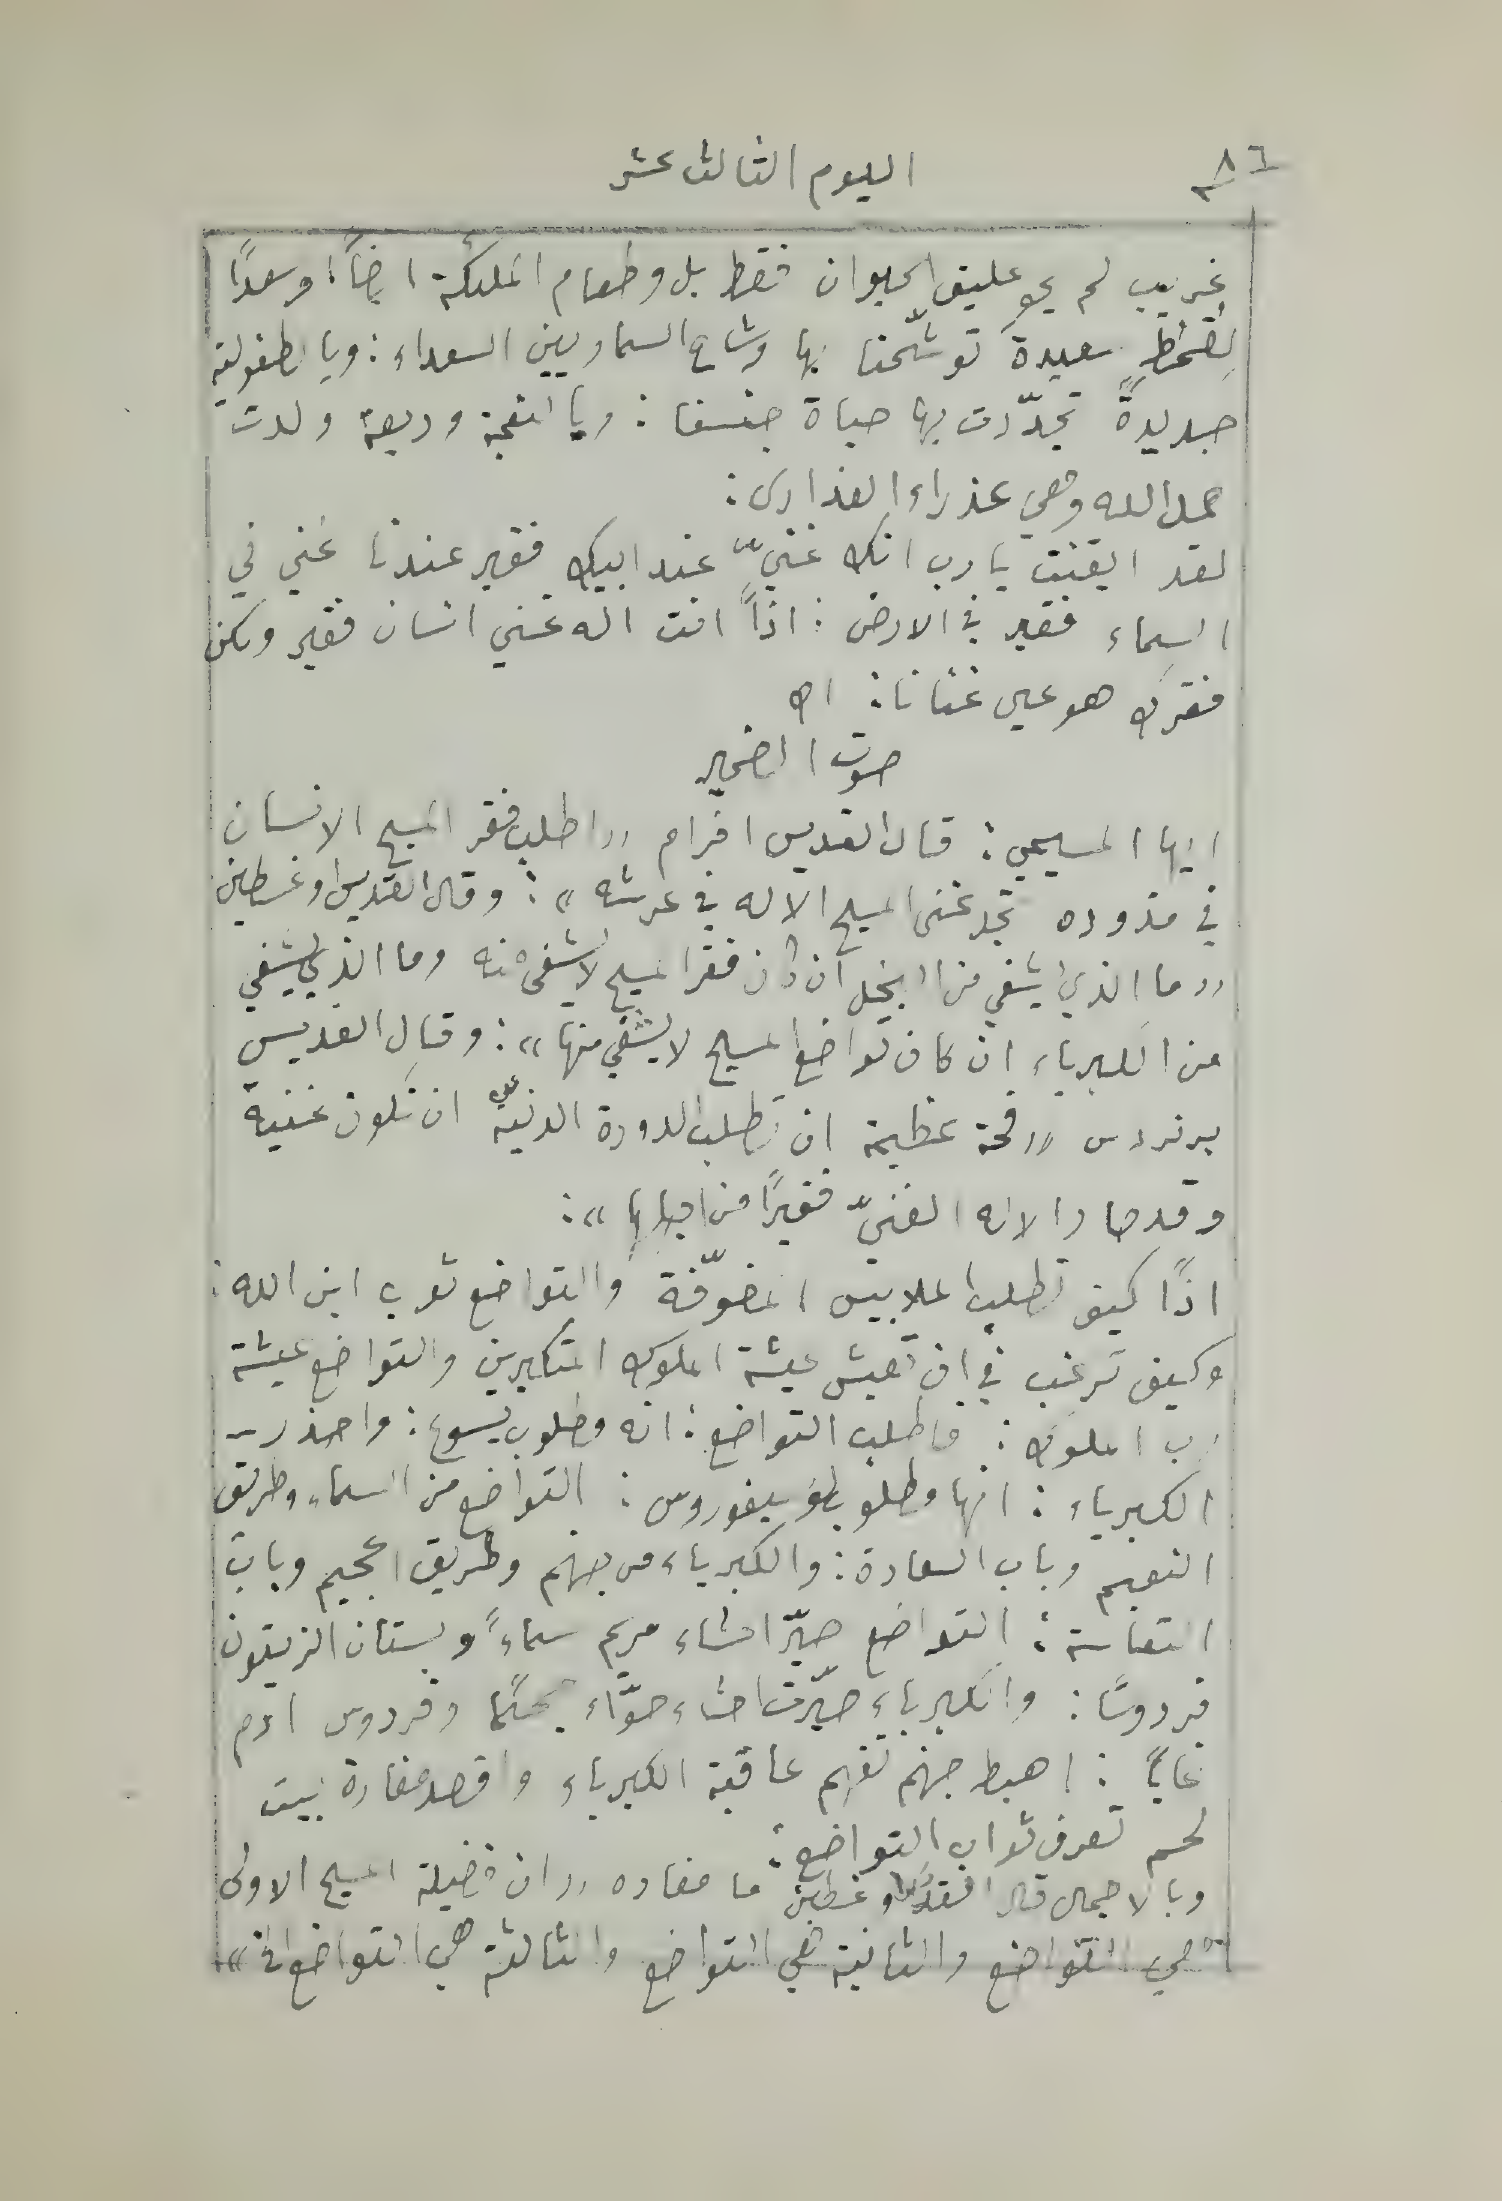 ٨٦
اليوم الثالث عشر
غريب لم يحوِ عليق الحيوان فقط بل وطعام الملئكة ايضاً: وسعدًا
لقمطٍ سعيدة توشّحنا بها وشاح السماويين السعداء: ويا لطفوليةٍ
جديدةً تجدّدت بها حياة جنسنا: ويا لنعجة وديعة ولدت
حمل الله وهي عذراء العذارى:
لقد ايقنت يا رب انك غنيّ عند ابيك فقير عندنا غني في
السماء فقير في الارض: اذاً انت اله غني انسان فقير ولكن
فقرك هو عين غنانا: اه
صوت الضمير
ايها المسيحي: قال القديس افرام «اطلب فقر المسيح الانسان
في مذوده تجد غنى المسيح الاله في عرشه»: وقال القديس اوغسطين
«ما الذي يشفي من البخل ان كان فقر المسيح لا يشفى منه وما الذي يشفي
من الكبرياء ان كان تواضع المسيح لا يشفي منها»: وقال القديس
برنردس «قحة عظيمة ان تطلب الدودة الدنيّة ان تكون غنية
وقد صار الاله الغنيّ فقيرًا من اجلها»:
اذًا كيف تطلب الملابيس المضوّفة والتواضع ثوب ابن الله:
وكيف ترغب في ان تعيش عيشة الملوك المتكبرين والتواضع عيشة
رب الملوك: فاطلب التواضع: انه مطلوب يسوع: واحذر
الكبرياء: انها مطلوب لوسيفوروس: التواضع من السماء وطريق
النعيم وباب السعادة: والكبرياء من جهنم وطريق الجحيم وباب
التعاسة: التواضع صيّر احشاء مريم سماءً وبستان الزيتون
فردوسًا: والكبرياء صيّرت احشاء حوّاء جهنما وفردوس ادم
غابًا: اهبط جهنم تفهم عاقبة الكبرياء واقصد مغارة بيت
لحم تعرف ثواب التواضع:
وبالاجمال قال القديس اوغسطين ما مفاده «ان فضيلة المسيح الاولى
هي التواضع والثانية هي التواضع والثالثة هي التواضع الخ»